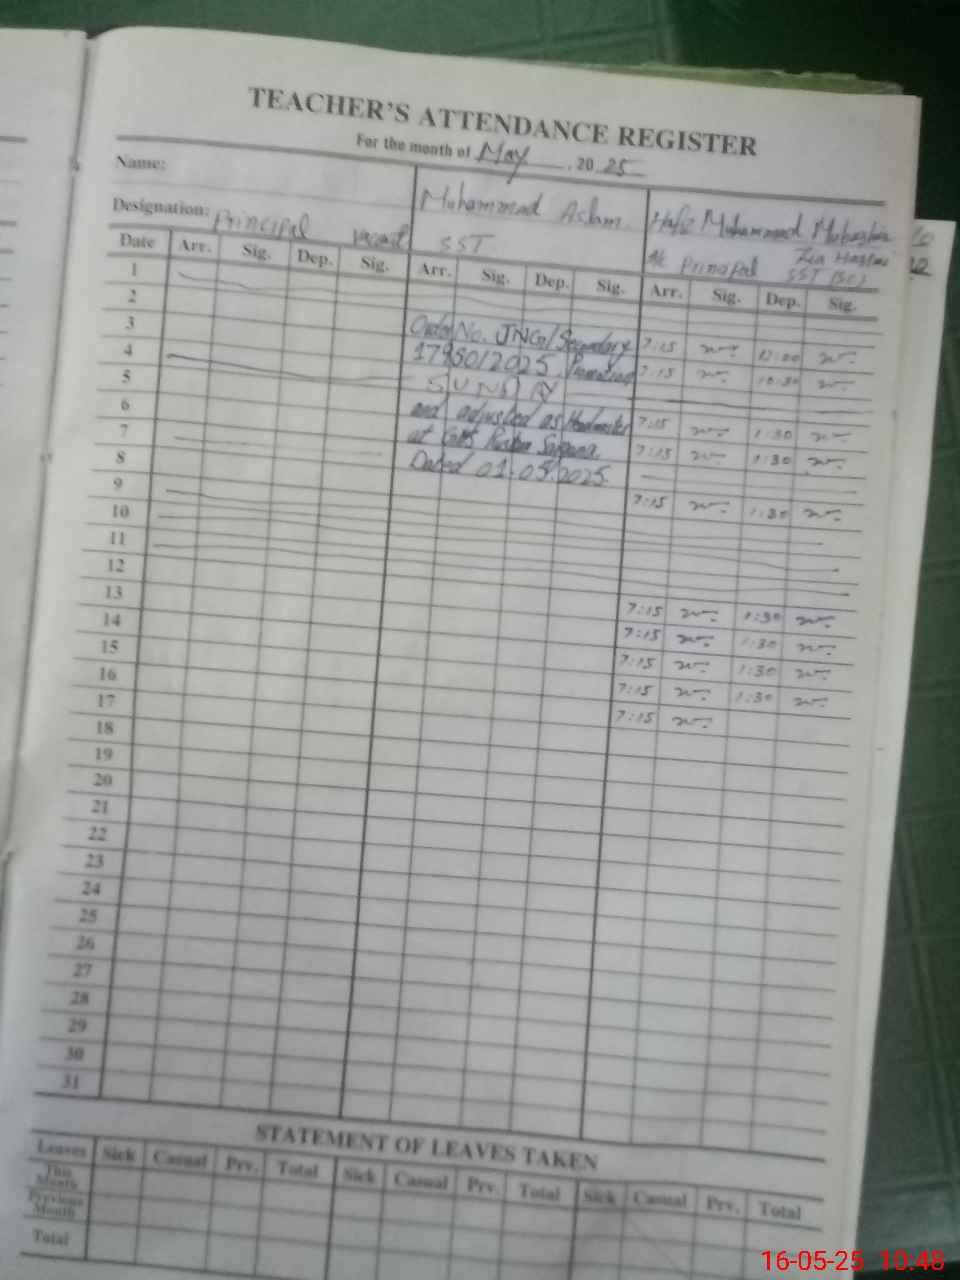 TEACHER'S ATTENDANCE REGISTER
For the month of May, 2025
Name: Muhammad Aslam. Hafiz Muhammad Mubashir
Zia Hashmi
Designation: Principal vacant SST A/c Principal SST (SC)
Date Arr. Sig. Dep. Sig. Arr. Sig. Dep. Sig. Arr. Sig. Dep. Sig.
1
2 Order No. JNG/Secondary 7:15 12:00
3 1795012025 Promotion 7:15 10:30
4 SUNDAY
5 and adjusted as Headmaster 7:15 1:30
6 at GMS 7:15 1:30
7 Dated 01.05.2025
8 7:15 1:30
9
10
11
12 7:15 1:30
13 7:15 1:30
14 7:15 1:30
15 7:15 1:30
16 7:15
17
18
19
20
21
22
23
24
25
26
27
28
29
30
31
STATEMENT OF LEAVES TAKEN
Leaves Sick Casual Prv. Total Sick Casual Prv. Total Sick Casual Prv. Total
This Month
Previous Month
Total
16-05-25 10:48